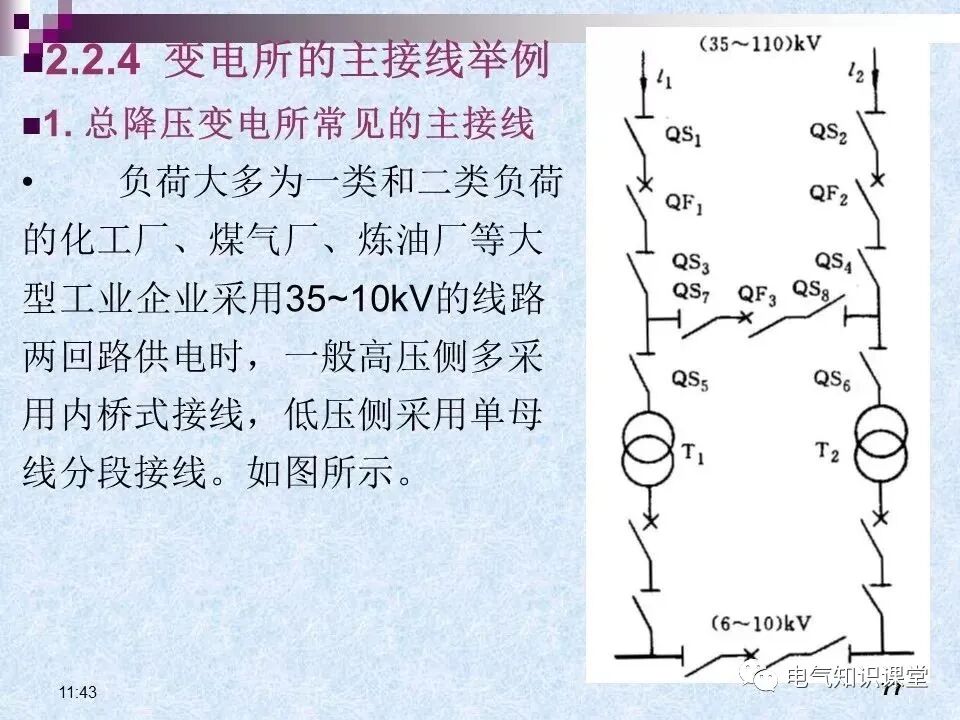 2.2.4 变电所的主接线举例
1. 总降压变电所常见的主接线
• 负荷大多为一类和二类负荷
的化工厂、煤气厂、炼油厂等大
型工业企业采用35~10kV的线路
两回路供电时，一般高压侧多采
用内桥式接线，低压侧采用单母
线分段接线。如图所示。
(35～110)kV
l1 l2
QS1 QS2
QF1 QF2
QS3 QS4
QS7 QF3 QS8
QS5 QS6
T1 T2
(6～10)kV
电气知识课堂
11:43